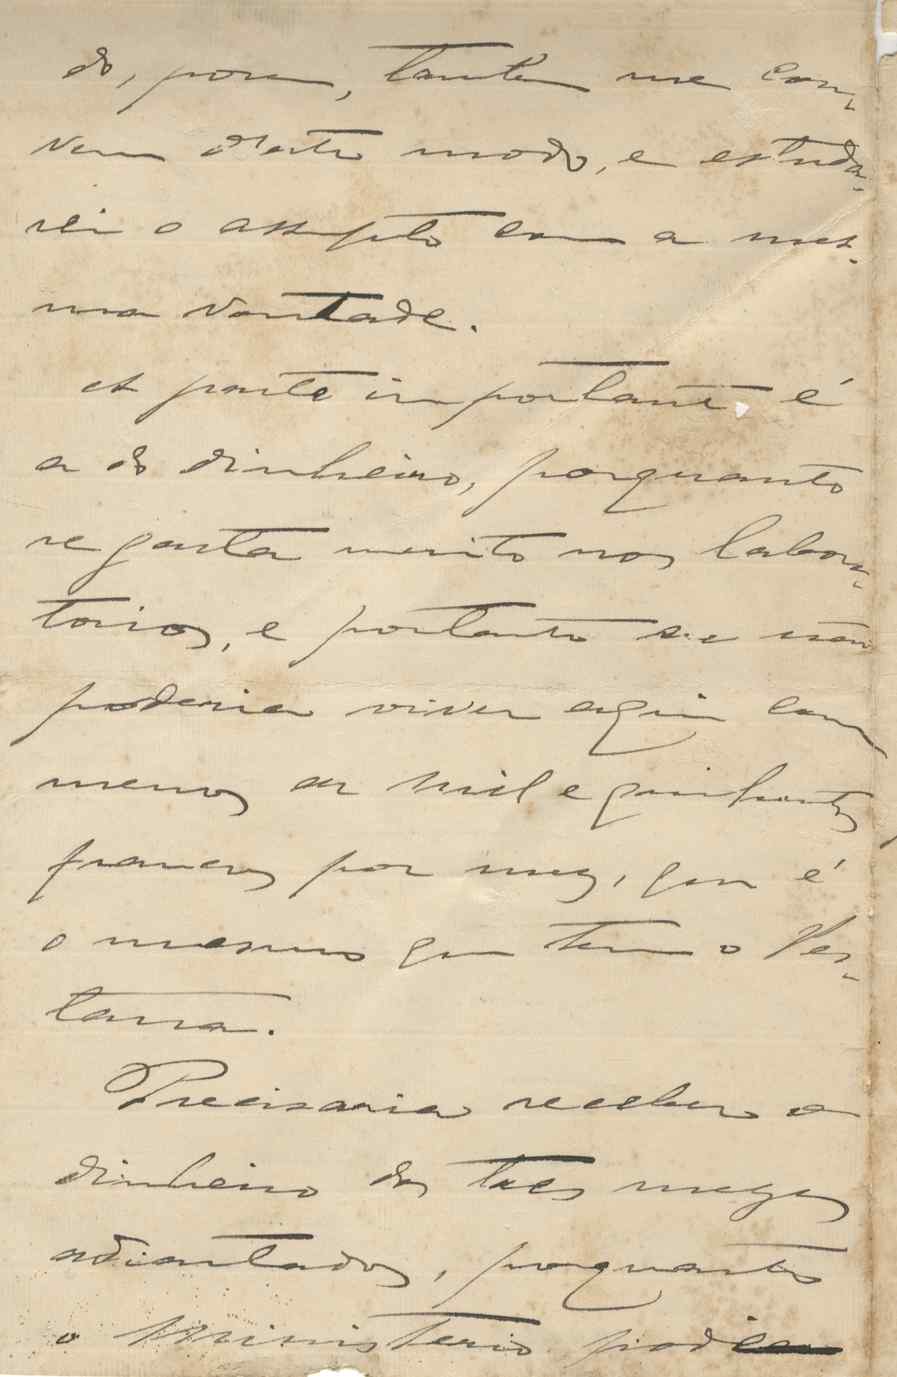 do, porem, tambem me con-
vem d'este modo, e estuda-
rei o assumpto com a mes-
ma vontade.
A parte importante é
a do dinheiro, porquanto
se gasta muito nos labora-
torios, e portanto eu não
poderia viver aqui com
menos de mil e quinhentos
francos por mez, que é
o mesmo que tem o Pes-
tana.
Precisaria receber o
dinheiro dos tres mezes
adiantados, porquanto
o Ministerio pode